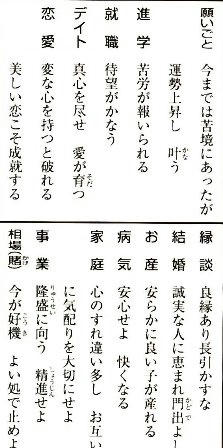 願いごと　今までは苦境にあったが
運勢上昇し　叶う
進学　苦労が報いられる
就職　待望がかなう
デイト　真心を尽せ　愛が育つ
恋愛　変な心を持つと破れる
美しい恋こそ成就する
縁談　良縁あり長引かすな
結婚　誠実な人に恵まれ門出よ
お産　安らかに良い子が産れる
病気　安心せよ　快くなる
家庭　心のすれ違い多し　お互い
に気配りを大切にせよ
事業　隆盛に向う　精進せよ
相場(賭)　今が好機　よい処で止めよ